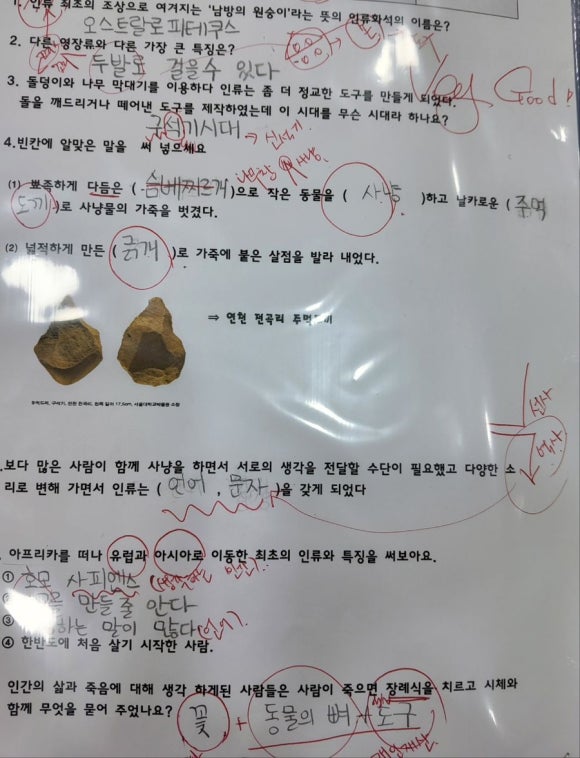 1. 인류 최초의 조상으로 여겨지는 '남방의 원숭이'라는 뜻의 인류화석의 이름은?
오스트랄로피테쿠스
2. 다른 영장류와 다른 가장 큰 특징은?
두발로 걸을수 있다
Very Good!
3. 돌덩이와 나무 막대기를 이용하다 인류는 좀 더 정교한 도구를 만들게 되었다.
돌을 깨드리거나 떼어낸 도구를 제작하였는데 이 시대를 무슨 시대라 하나요?
구석기시대 → 신석기
4.빈칸에 알맞은 말을 써 넣으세요
(1) 뾰족하게 다듬은 ( 슴베찌르개 )으로 작은 동물을 ( 사냥 )하고 날카로운 ( 주먹
도끼 )로 사냥물의 가죽을 벗겼다.
(2) 넓적하게 만든 ( 긁개 )로 가죽에 붙은 살점을 발라 내었다.
⇒ 연천 전곡리 주먹도끼
주먹도끼, 구석기, 연천 전곡리, 왼쪽 길이 17.5cm, 서울대학교박물관 소장
선사
역사
.보다 많은 사람이 함께 사냥을 하면서 서로의 생각을 전달할 수단이 필요했고 다양한 소
리로 변해 가면서 인류는 ( 언어 , 문자 )을 갖게 되었다
. 아프리카를 떠나 유럽과 아시아로 이동한 최초의 인류와 특징을 써보아요.
① 호모 사피엔스
② 만들줄 안다
③ 하는 말이 많다 (언어)
④ 한반도에 처음 살기 시작한 사람.
인간의 삶과 죽음에 대해 생각 하게된 사람들은 사람이 죽으면 장례식을 치르고 시체와
함께 무엇을 묻어 주었나요? 꽃 + 동물의 뼈 + 도구